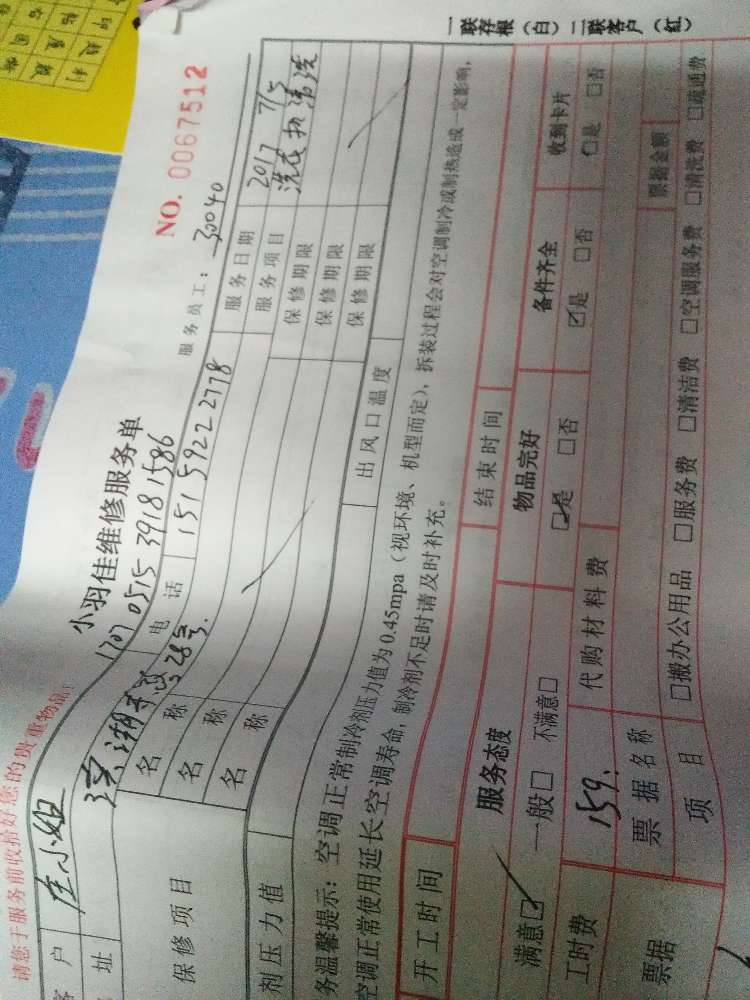 请您于服务前收拾好您的贵重物品！
小羽佳维修服务单
NO. 0067512
1707 0515 3918 1586
服务员工： 30040
客户 庄小姐 电话 151 5922 2778 服务日期 2017 7/5
址 28号. 服务项目 洗衣机清洗
保修项目 名称 保修期限
名称 保修期限
名称 保修期限
剂压力值 出风口温度
务温馨提示：空调正常制冷剂压力值为0.45mpa（视环境、机型而定），拆装过程会对空调制冷或制热造成一定影响，
空调正常使用延长空调寿命，制冷剂不足时请及时补充。
开工时间 结束时间
服务态度 物品完好 备件齐全 收到卡片
满意☑ 一般□ 不满意□ ☑是 □否 ☑是 □否 □是 □否
工时费 159. 代购材料费
票据 票据名称 票据金额
项目 □搬办公用品 □服务费 □清洁费 □空调服务费 □清洗费 □疏通费
一联存根（白） 二联客户（红）